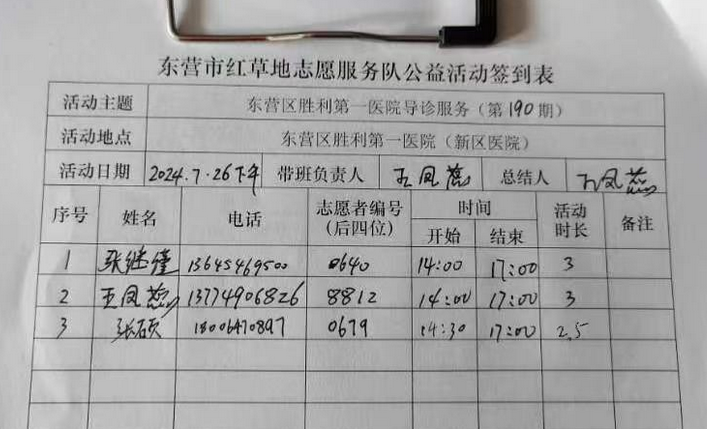 东营市红草地志愿服务队公益活动签到表
活动主题 东营区胜利第一医院导诊服务（第190期）
活动地点 东营区胜利第一医院（新区医院）
活动日期 2024.7.26下午 带班负责人 王凤蕊 总结人 王凤蕊
序号 姓名 电话 志愿者编号（后四位） 时间 开始 结束 活动时长 备注
1 张继 13645469500 0640 14:00 17:00 3
2 王凤蕊 13774906826 8812 14:00 17:00 3
3 张硕 18006470897 0679 14:30 17:00 2.5